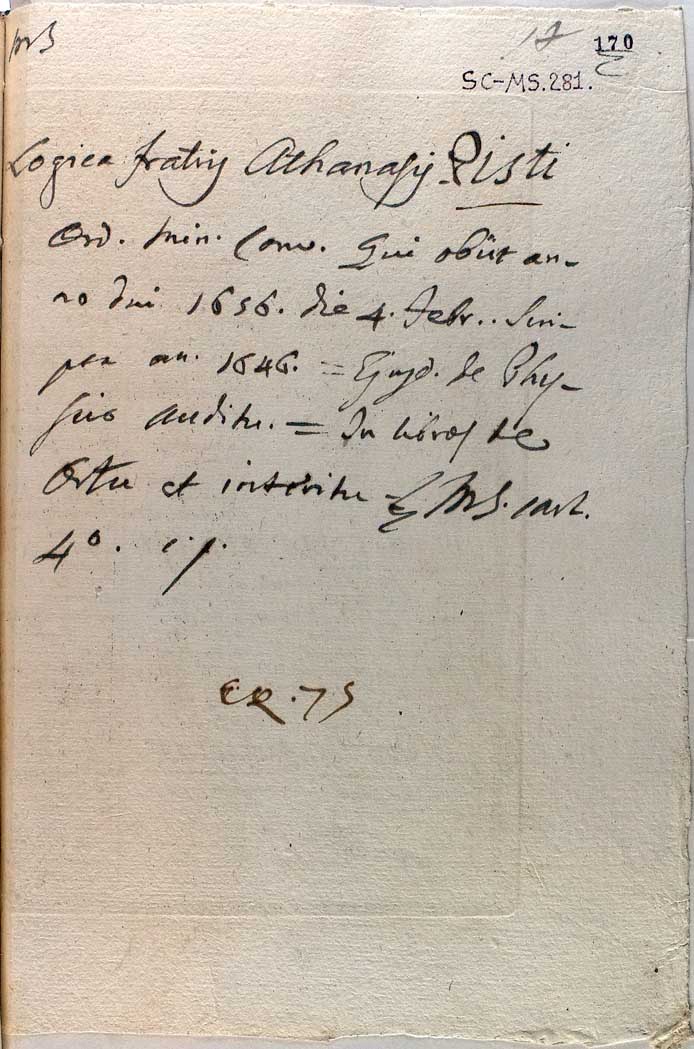 MS
17 170
SC-MS.281.
Logica fratris Athanasij Pisti
Ord. Min. Conv. Qui obijt an-
no Dni 1656. die 4. Febr.. Scri-
pta an. 1646. = Ejusd. de Phy-
sico auditu. = In libros de
Ortu et interitu MS. cart.
4°.